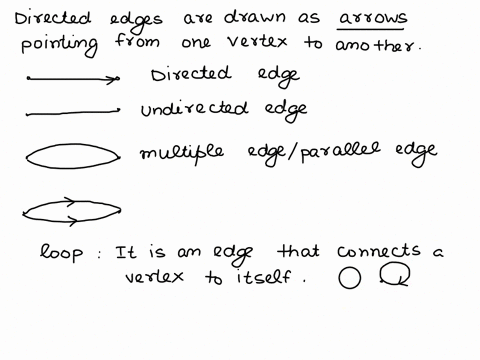 Directed edges are drawn as arrows
pointing from one vertex to another.
Directed edge
undirected edge
multiple edge/parallel edge
loop : It is an edge that connects a
vertex to itself.